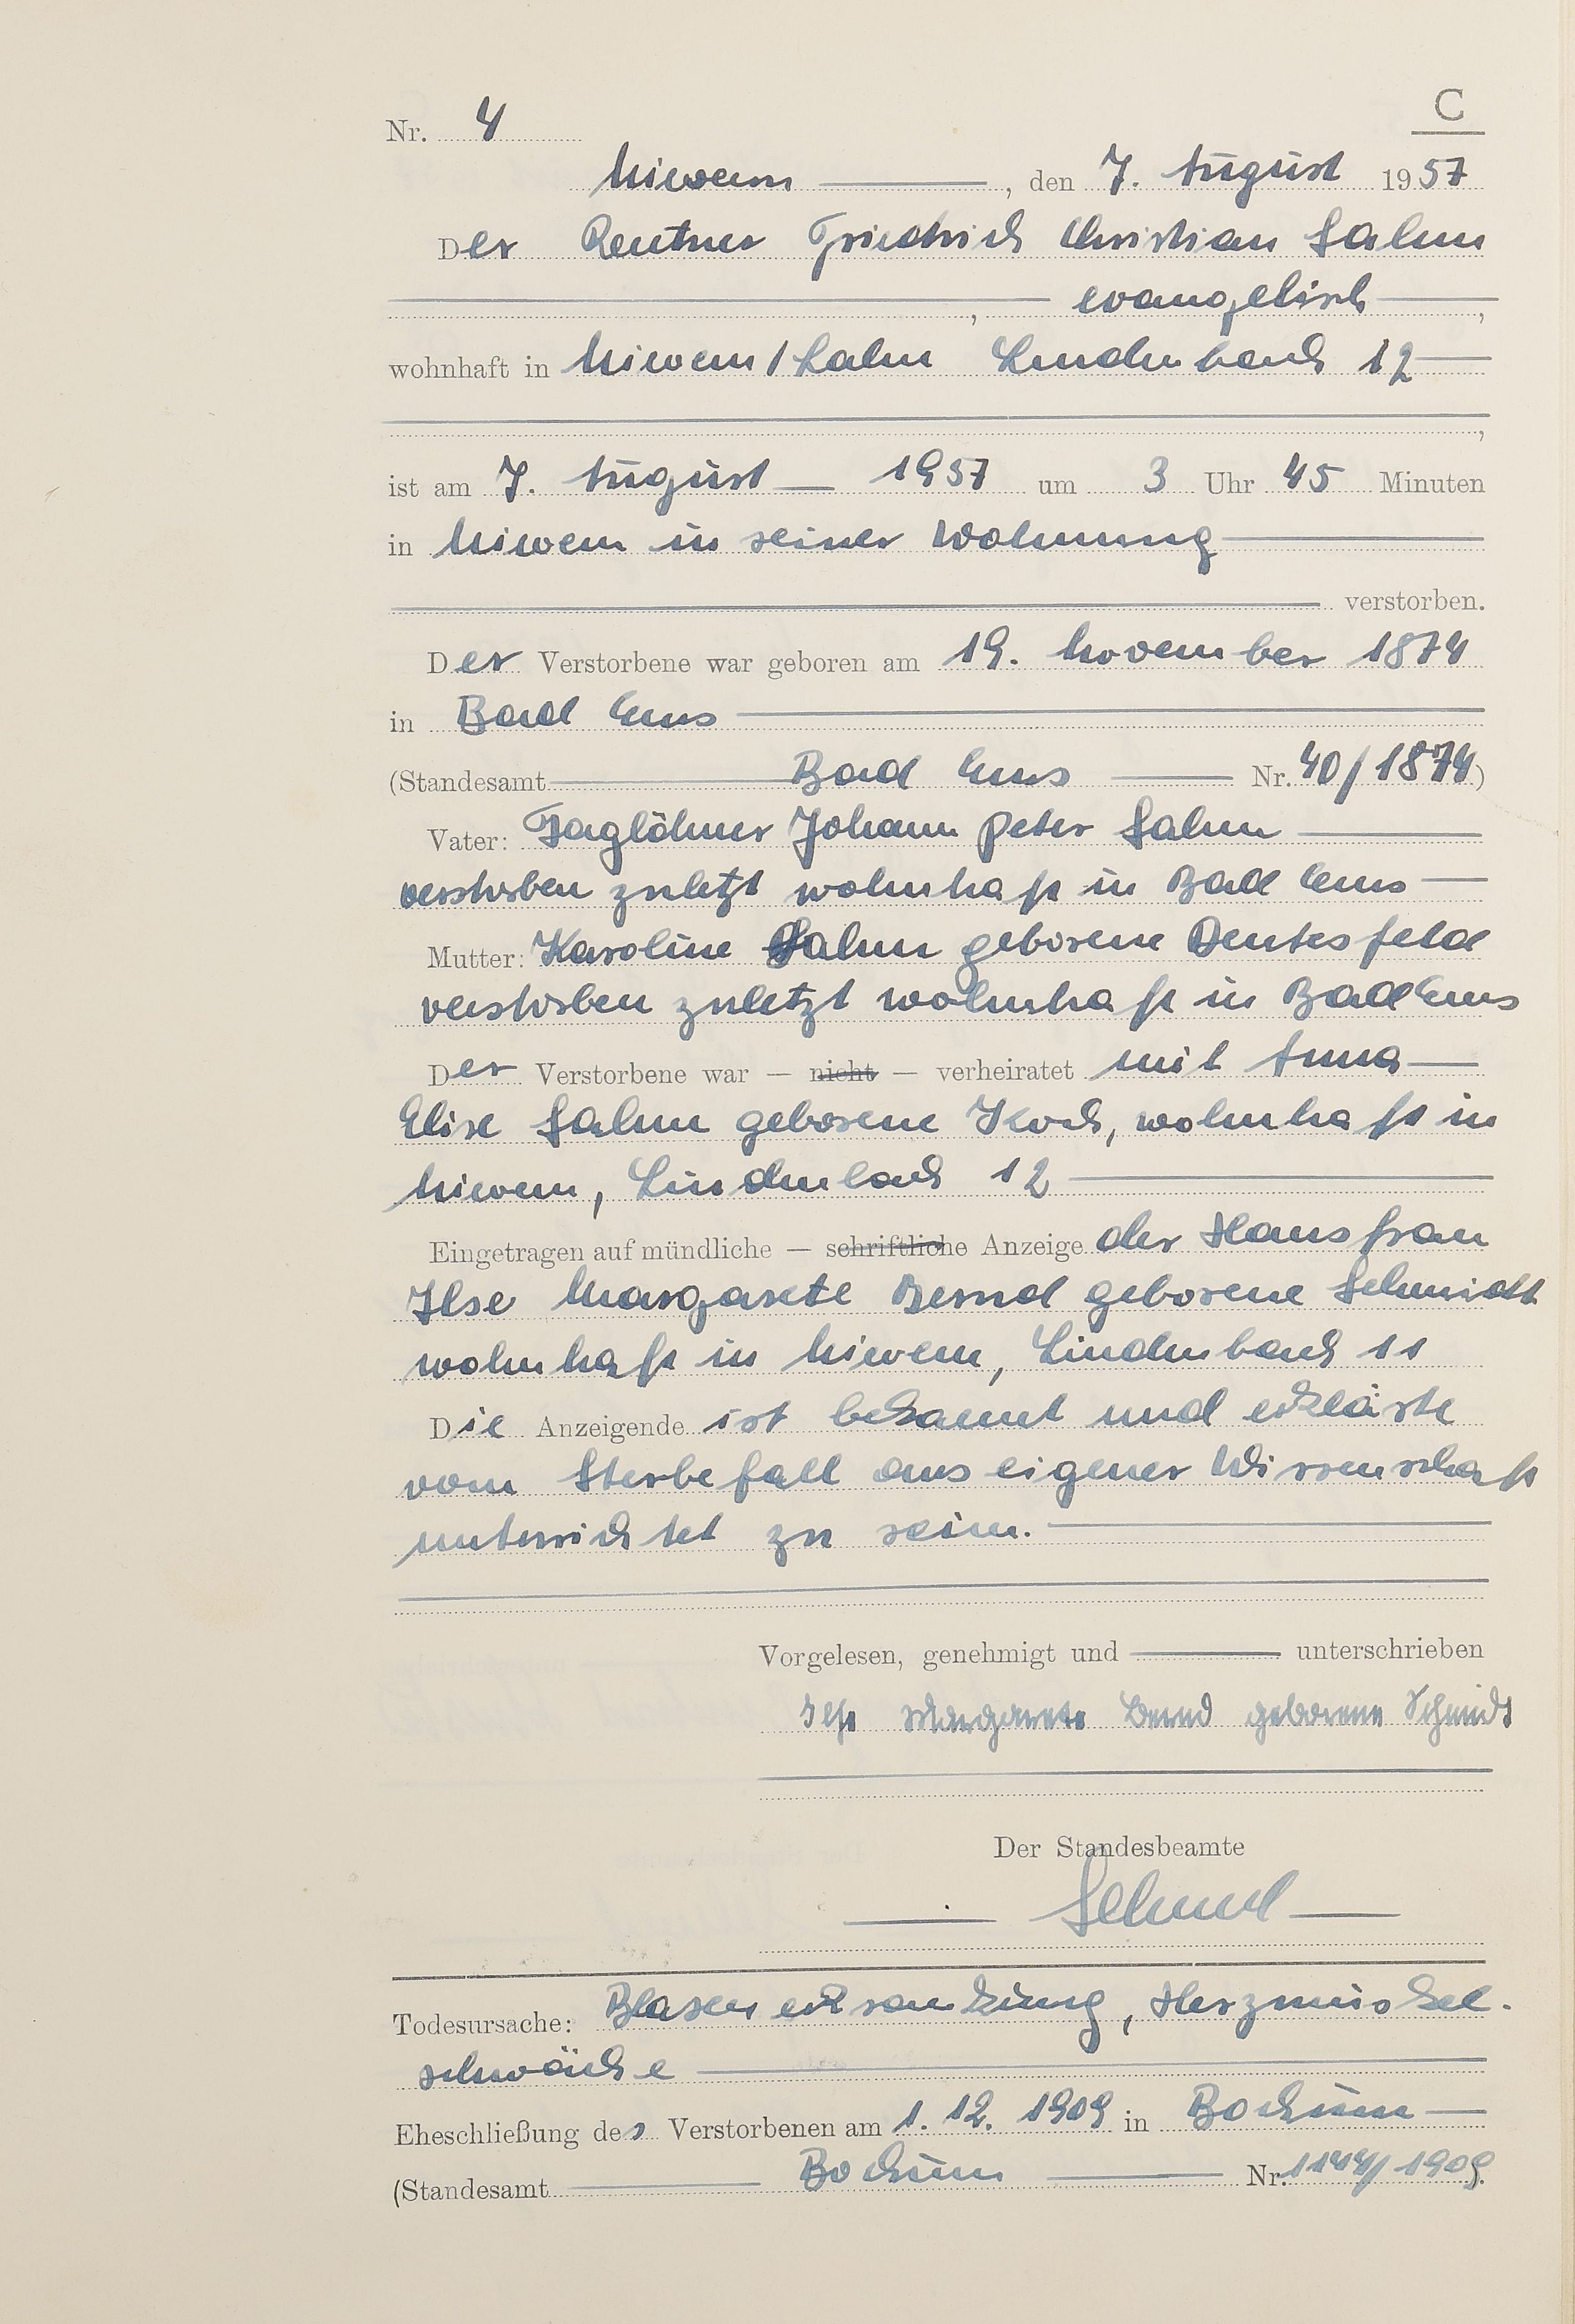 C
Nr. 4
Nievern, den 7. August 1957
Der Rentner Friedrich Christian Salm
, evangelisch,
wohnhaft in Nievern/Lahn Lindenbach 12
,
ist am 7. August 1957 um 3 Uhr 45 Minuten
in Nievern in seiner Wohnung
verstorben.
Der Verstorbene war geboren am 19. November 1874
in Bad Ems
(Standesamt Bad Ems Nr. 40/1874)
Vater: Taglöhner Johann Peter Salm
verstorben zuletzt wohnhaft in Bad Ems
Mutter: Karoline Salm geborene Deutesfeld
verstorben zuletzt wohnhaft in Bad Ems
Der Verstorbene war — nicht — verheiratet mit Anna
Elise Salm geborene Koch, wohnhaft in
Nievern, Lindenbach 12
Eingetragen auf mündliche — schriftliche Anzeige der Hausfrau
Ilse Margarete Bernd geborene Schmidt
wohnhaft in Nievern, Lindenbach 11
Die Anzeigende ist bekannt und erklärte
vom Sterbefall aus eigener Wissenschaft
unterrichtet zu sein.
Vorgelesen, genehmigt und unterschrieben
Ilse Margarete Bernd geborene Schmidt
Der Standesbeamte
Todesursache: Blasenerkrankung, Herzmuskel-
schwäche
Eheschließung des Verstorbenen am 1. 12. 1909 in Bochum
(Standesamt Bochum Nr. 1144/1909.